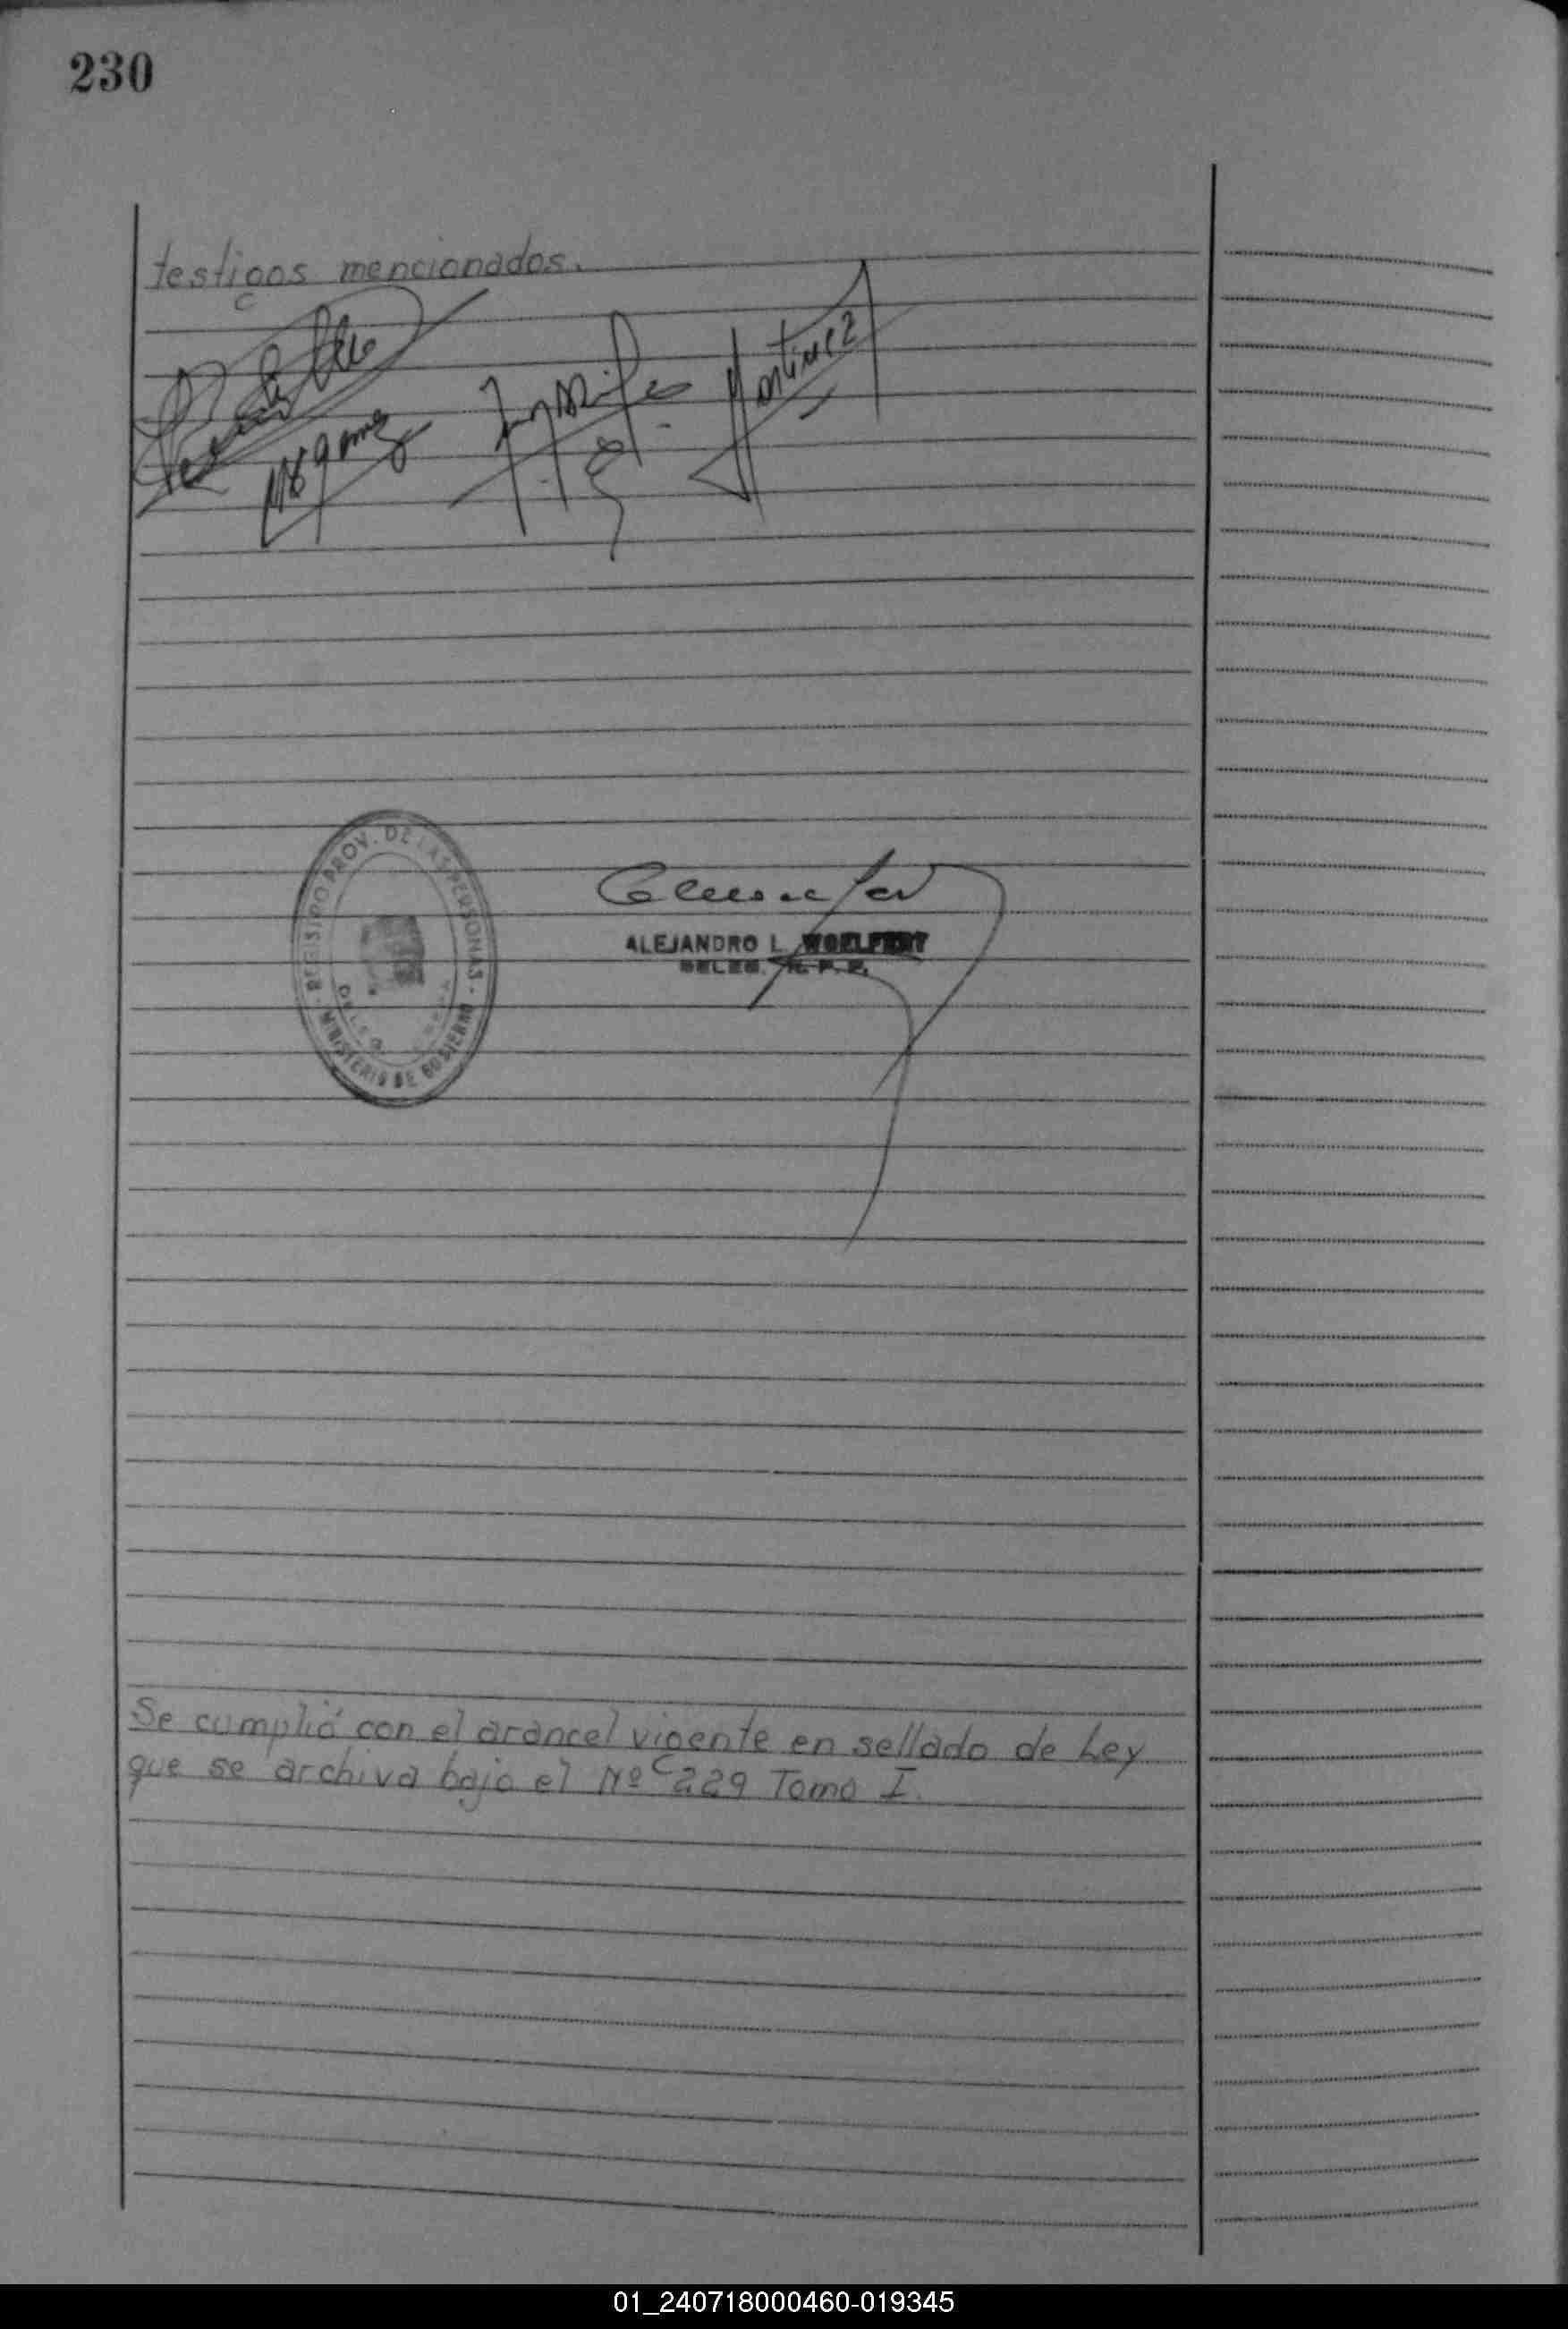 230
testigos mencionados.
Martinez
REGISTRO PROV. DE LAS PERSONAS
MINISTERIO DE GOBIERNO
ALEJANDRO L. WOELFERT
DELEG. R. P. P.
Se cumplió con el arancel vigente en sellado de Ley
que se archiva bajo el Nº 229 Tomo I.
01_240718000460-019345